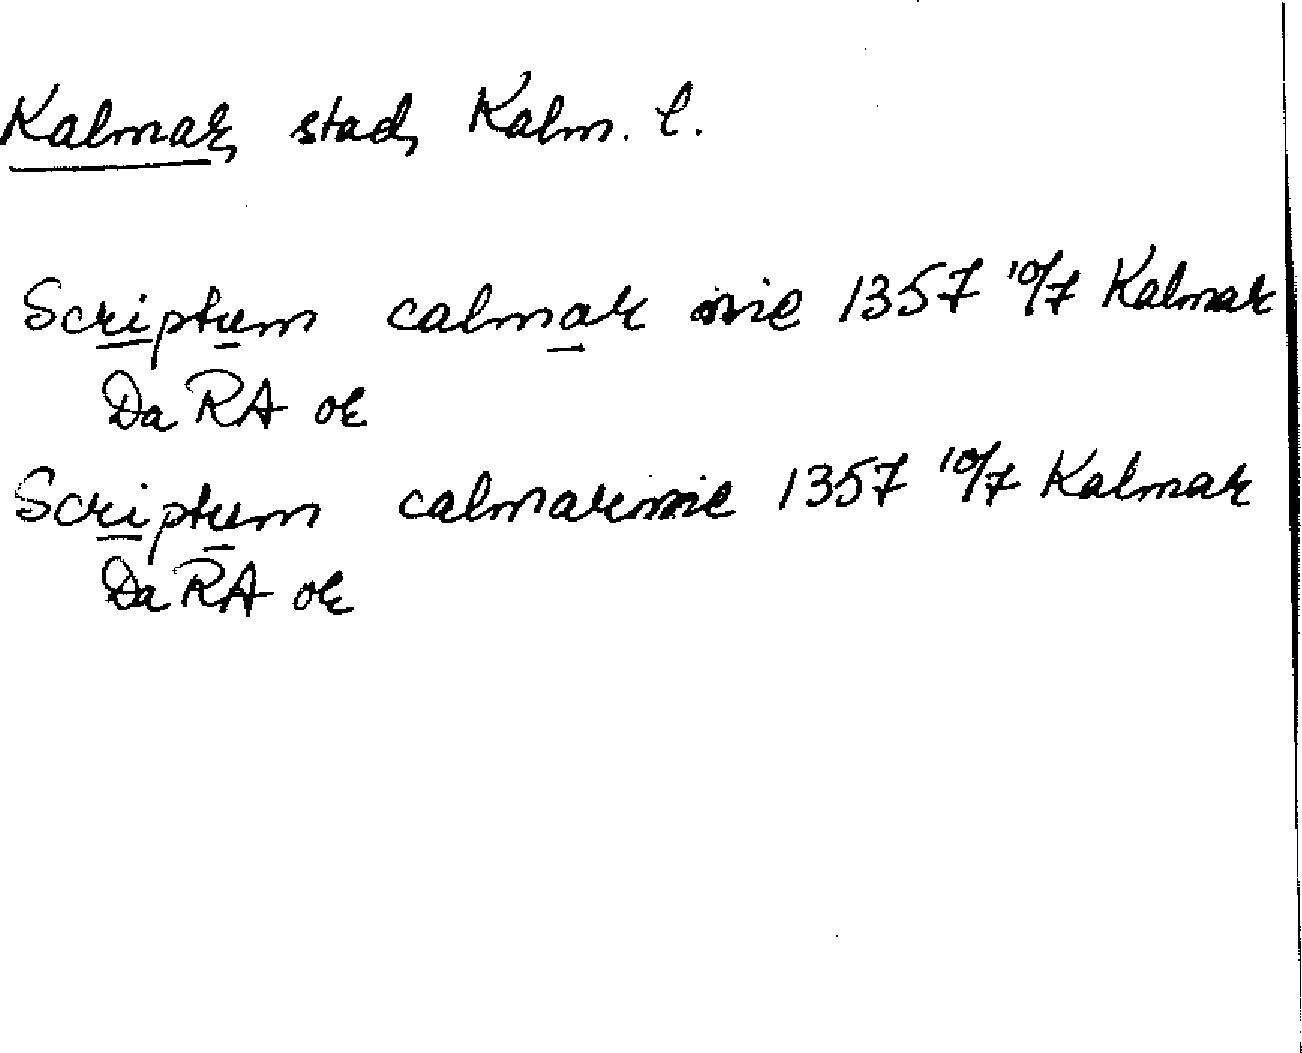 Kalmar, stad, Kalm. l.
Scriptum calmar nie 1357 10/7 Kalmar
Da RA or
Scriptum calmarnie 1357 10/7 Kalmar
Da RA or